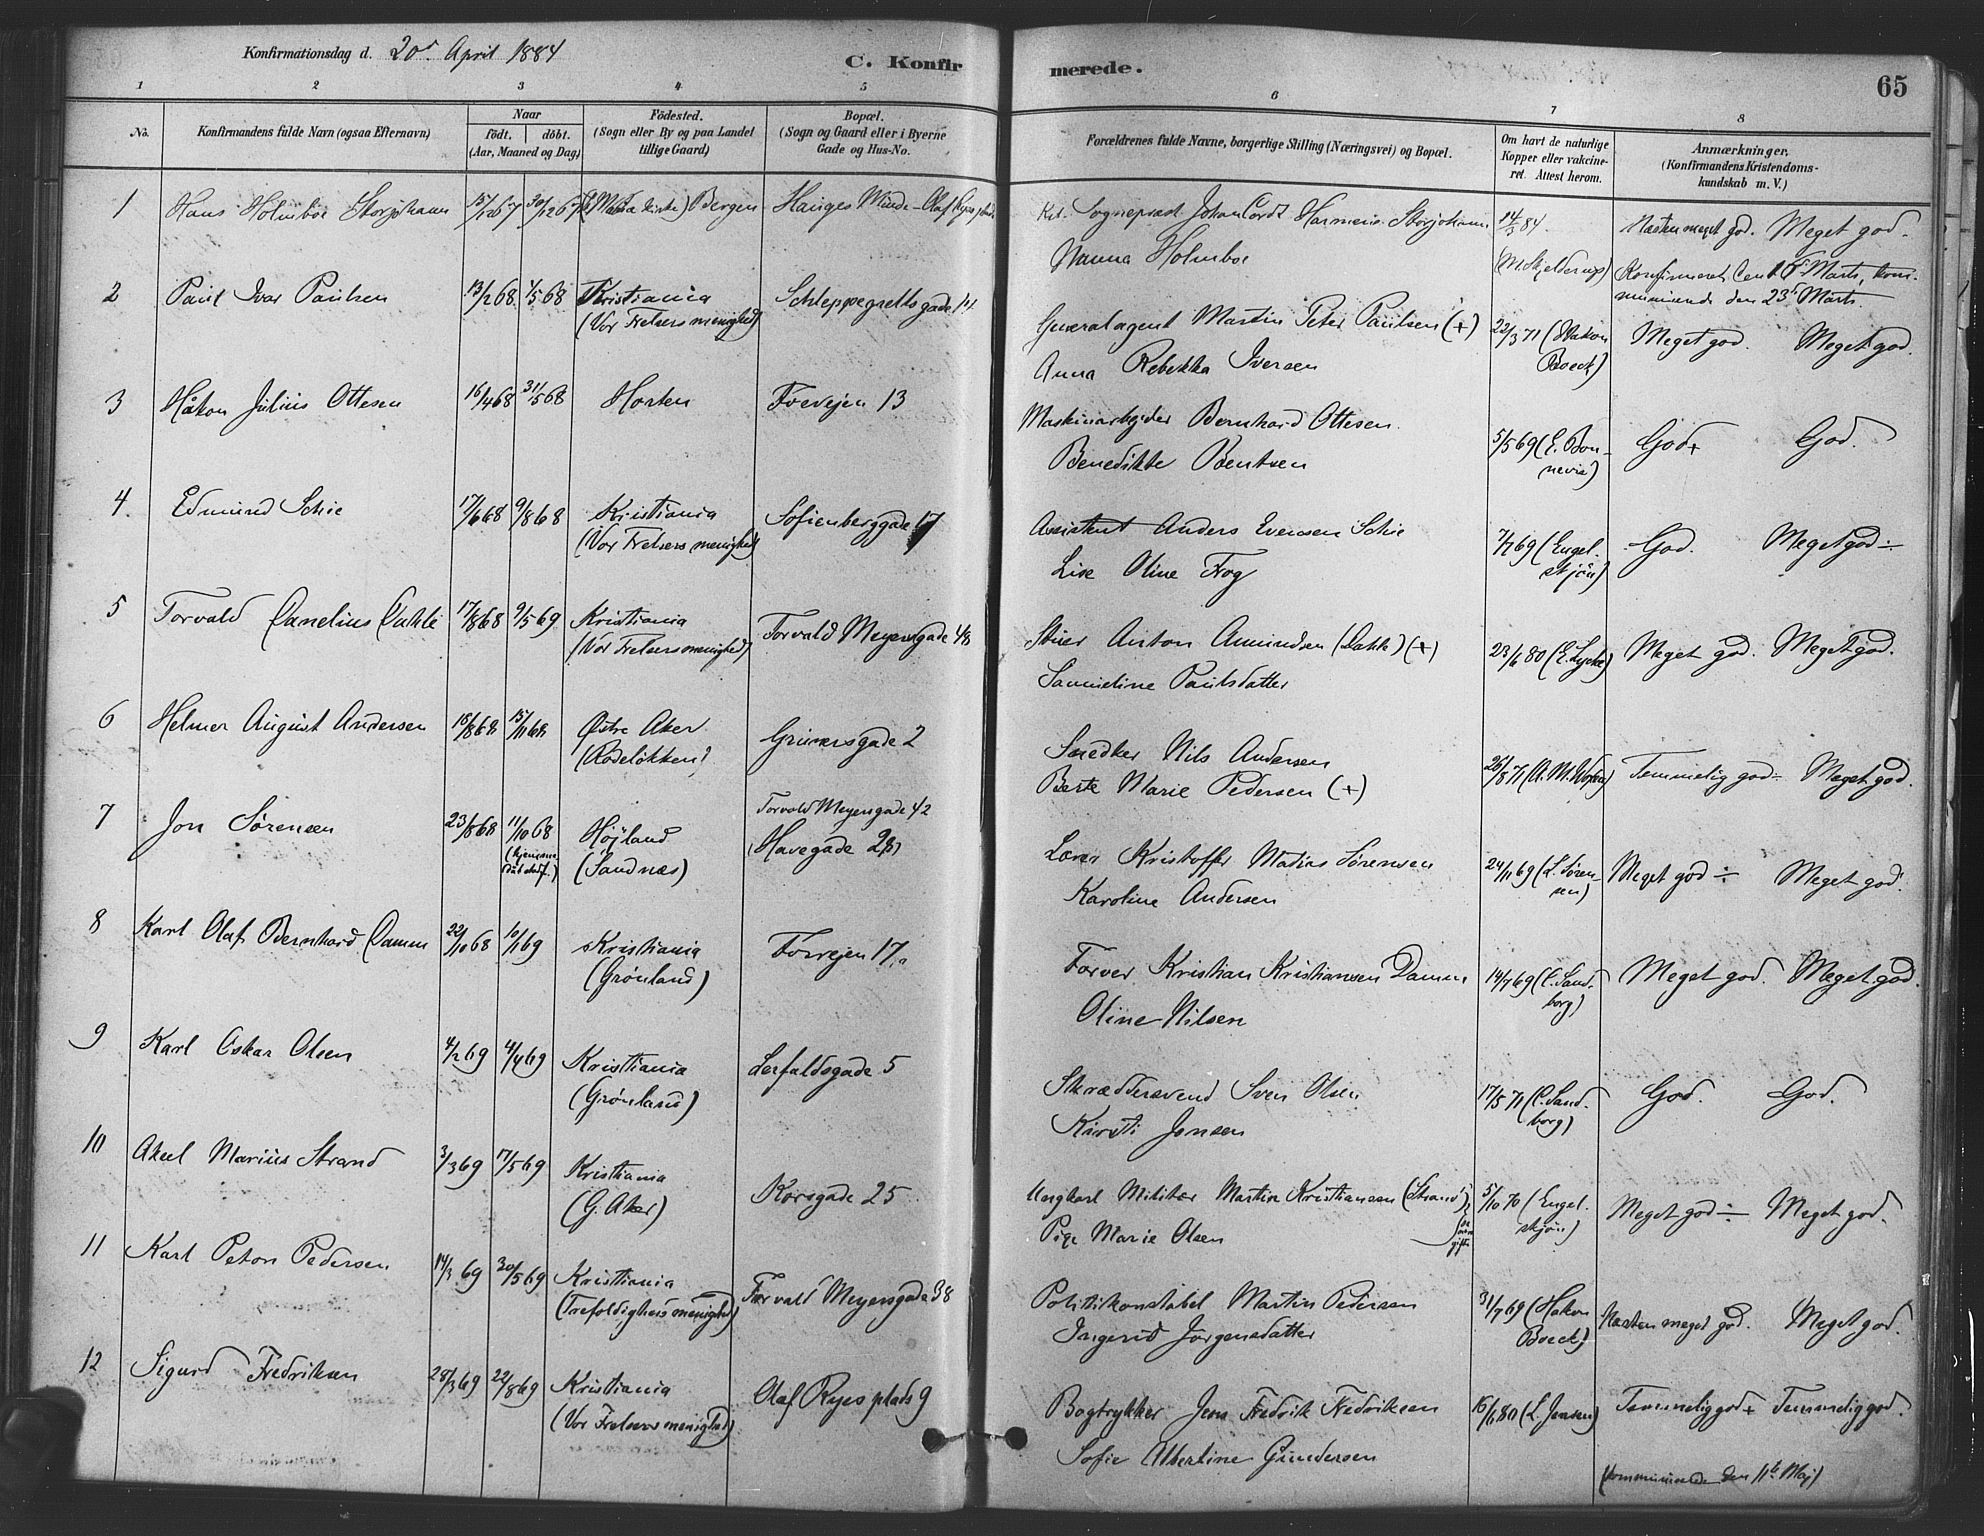 Konfirmationsdag d. 20de April 1884
C. Konfir
merede.
65
1 2 3 4 5 6 7 8
No.
Konfirmandens fulde Navn (ogsaa Efternavn)
Naar
födt, döbt.
(Aar, Maaned og Dag)
Födested.
(Sogn eller By og paa Landet
tillige Gaard)
Bopæl.
(Sogn og Gaard eller i Byerne
Gade og Hus-No.
Forældrenes fulde Navne, borgerlige Stilling (Næringsvei) og Bopæl.
Om havt de naturlige
Kopper eller vakcine-
ret. Attest herom.
Anmærkninger.
(Konfirmandens Kristendoms-
kundskab m. V.)
1 Hans Holmboe Storjohann 15/12 67 30/12 67 Bergen Hauges Minde - Olaf Ryes plads Sogneprest Johan Cordt Harmens Storjohann 14/3 84. Næsten meget god. Meget god.
Nanna Holmboe (M. Skjelderup) Konfirmeret den Marts, kom-
municerede den 23de Marts
2 Paul Ivar Paulsen 13/2 68 68 Kristiania Schleppegrells gade 14 Generalagent Martin Peter Paulsen (+) 22/3 71 (Hakon Meget god. Meget god.
(Vor Frelsers menighed) Anna Rebekka Iversen Boeck)
3 Håkon Julius Ottesen 16/4 68 31/5 68 Horten Fossvejen 13 Maskinarbejder Bernhard Ottesen 5/5 69 (E. Bon- God+ God.
Benedikte Bentsen nevie)
4 Edmund Schie 17/6 68 9/8 68 Kristiania Sofienberggade 17 Assistent Anders Evensen Schie 69 (Engel- God. Meget god÷
(Vor Frelsers menighed) Lise Oline Frog skjön)
5 Torvald Danelius Dahle 17/8 68 9/5 69 Kristiania Torvald Meyersgade 48 Anton Amundsen (Dahle) (+) 23/6 80 (E. Lyche) Meget god. Meget god.
(Vor Frelsers menighed) Samueline Paulsdatter
6 Helmer August Andersen 18/8 68 15/11 68 Østre Aker Grünersgade 2 Snedker Nils Andersen 26/8 71 Temmelig god÷ Meget god.
(Rodeløkken) Marie Pedersen (+)
7 Jon Sørensen 23/8 68 11/10 68 Højland Torvald Meyersgade 42
(hjemme (Sandnæs) (Havegade 28) Lærer Kristoffer Matias Sørensen 24/11 69 (L. Sören- Meget god÷ Meget god.
Karoline Andersen sen)
8 Karl Olaf Bernhard Damm 22/10 68 10/1 69 Kristiania Fossvejen 17.a Farver Kristian Kristiansen Damm 14/7 69 (C. Sand- Meget god. Meget god.
(Grönland) Oline Nilsen borg)
9 Karl Oskar Olsen 4/2 69 4/4 69 Kristiania Lerfaldsgade 5 Skræddersvend Sven Olsen 17/5 71 (C. Sand- God. God.
(Grönland) Kirsti Jensen borg)
10 Aksel Marius Strand 3/3 69 17/5 69 Kristiania Korsgade 25 Ungkarl Militær Martin Kristiansen (Strand) 5/10 70 (Engel- Meget god÷ Meget god.
(G. Aker) Pige Marie Olsen gifte skjön)
11 Karl Peter Pedersen 14/3 69 30/5 69 Kristiania Torvald Meyersgade 38 Politikonstabel Martin Pedersen 31/7 69 (Hakon Næsten meget god. Meget god.
(Trefoldigheds menighed) Ingerid Jørgensdatter Boeck)
12 Sigurd Fredriksen 28/3 69 22/8 69 Kristiania Olaf Ryes plads 9 Bogtrykker Jens Fredrik Fredriksen 16/6 80 (L. Jensen) Temmelig god+ Temmelig god.
(Vor Frelsers menighed) Sofie Albertine Gundersen
(kommunicerede den 11te Maj)